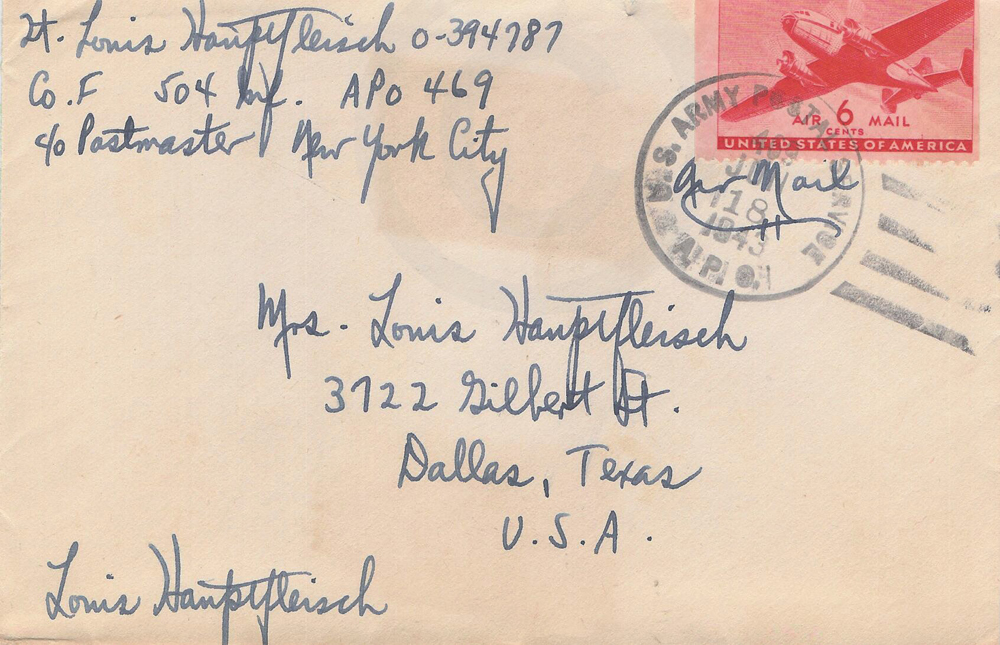 Lt. Louis Hauptfleisch O-394787
Co. F 504 Inf. APO 469
c/o Postmaster New York City
AIR 6 MAIL
CENTS
UNITED STATES OF AMERICA
U.S. ARMY POSTAL SERVICE
18
1943
A.P.O.
Air Mail
Mrs. Louis Hauptfleisch
3722 Gilbert St.
Dallas, Texas
U.S.A.
Louis Hauptfleisch